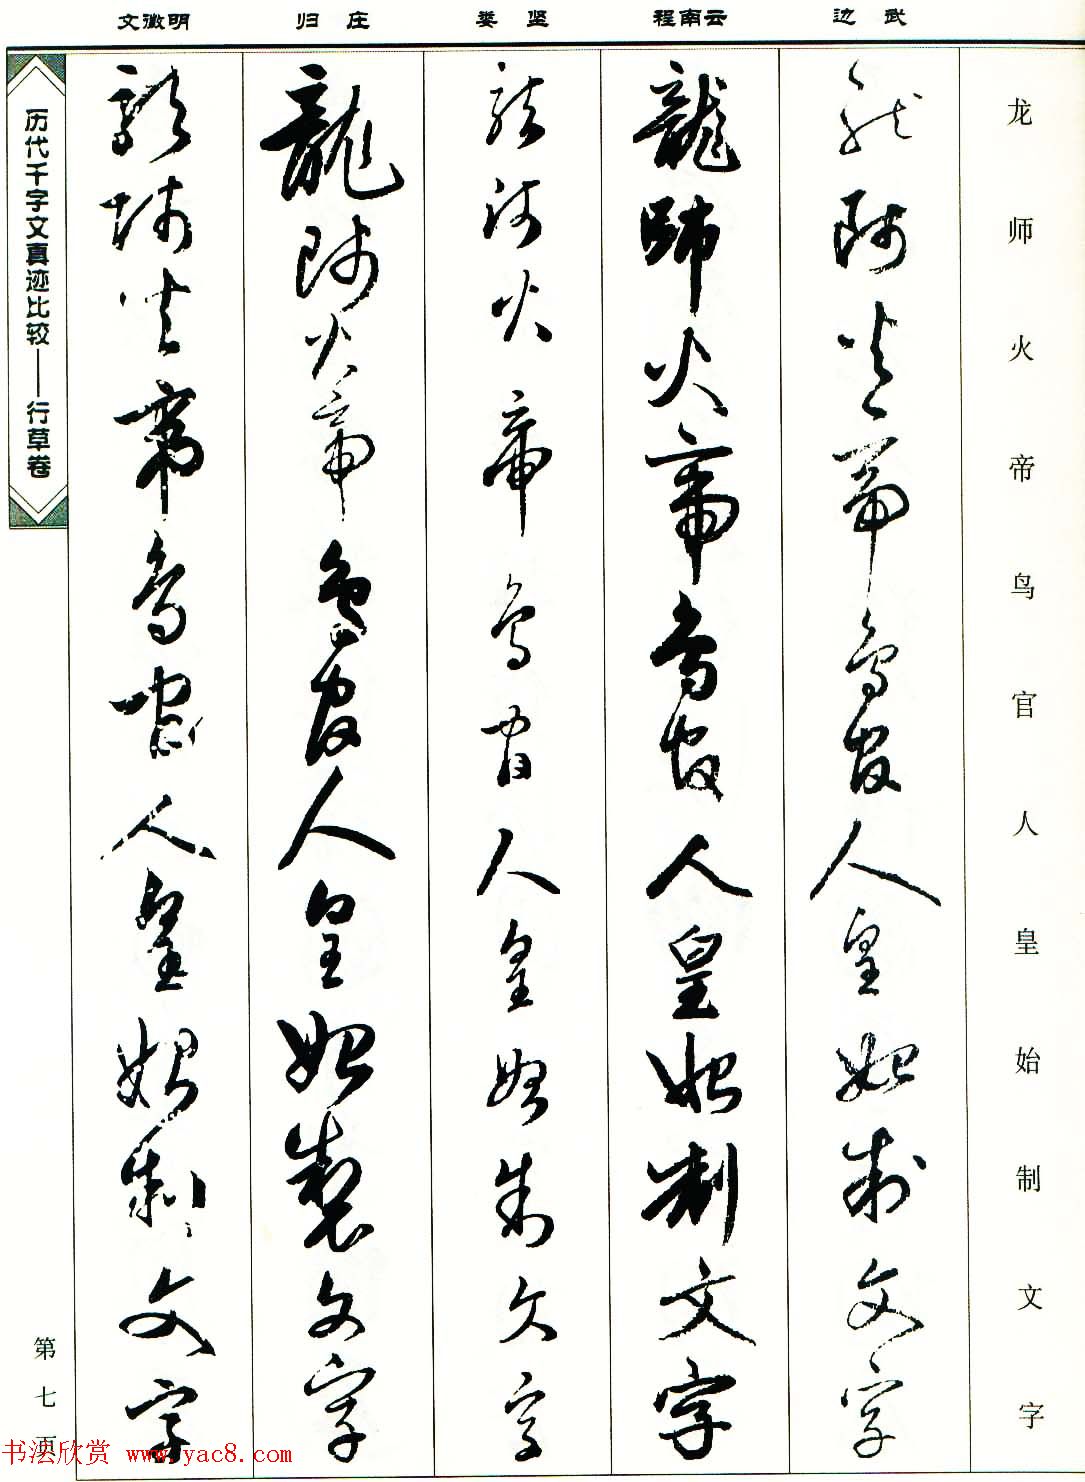 龙师火帝鸟官人皇始制文字
边武
龍師火帝鳥官人皇始制文字
程南云
龍師火帝鳥官人皇始制文字
娄坚
龍師火帝鳥官人皇始制文字
归庄
龍師火帝鳥官人皇始製文字
文徵明
龍師火帝鳥官人皇始制文字
历代千字文真迹比较——行草卷
第七页
书法欣赏 www.yac8.com